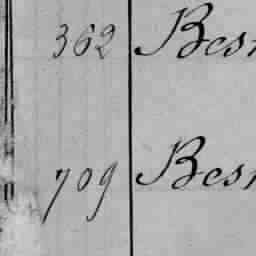 362 Best
709 Best